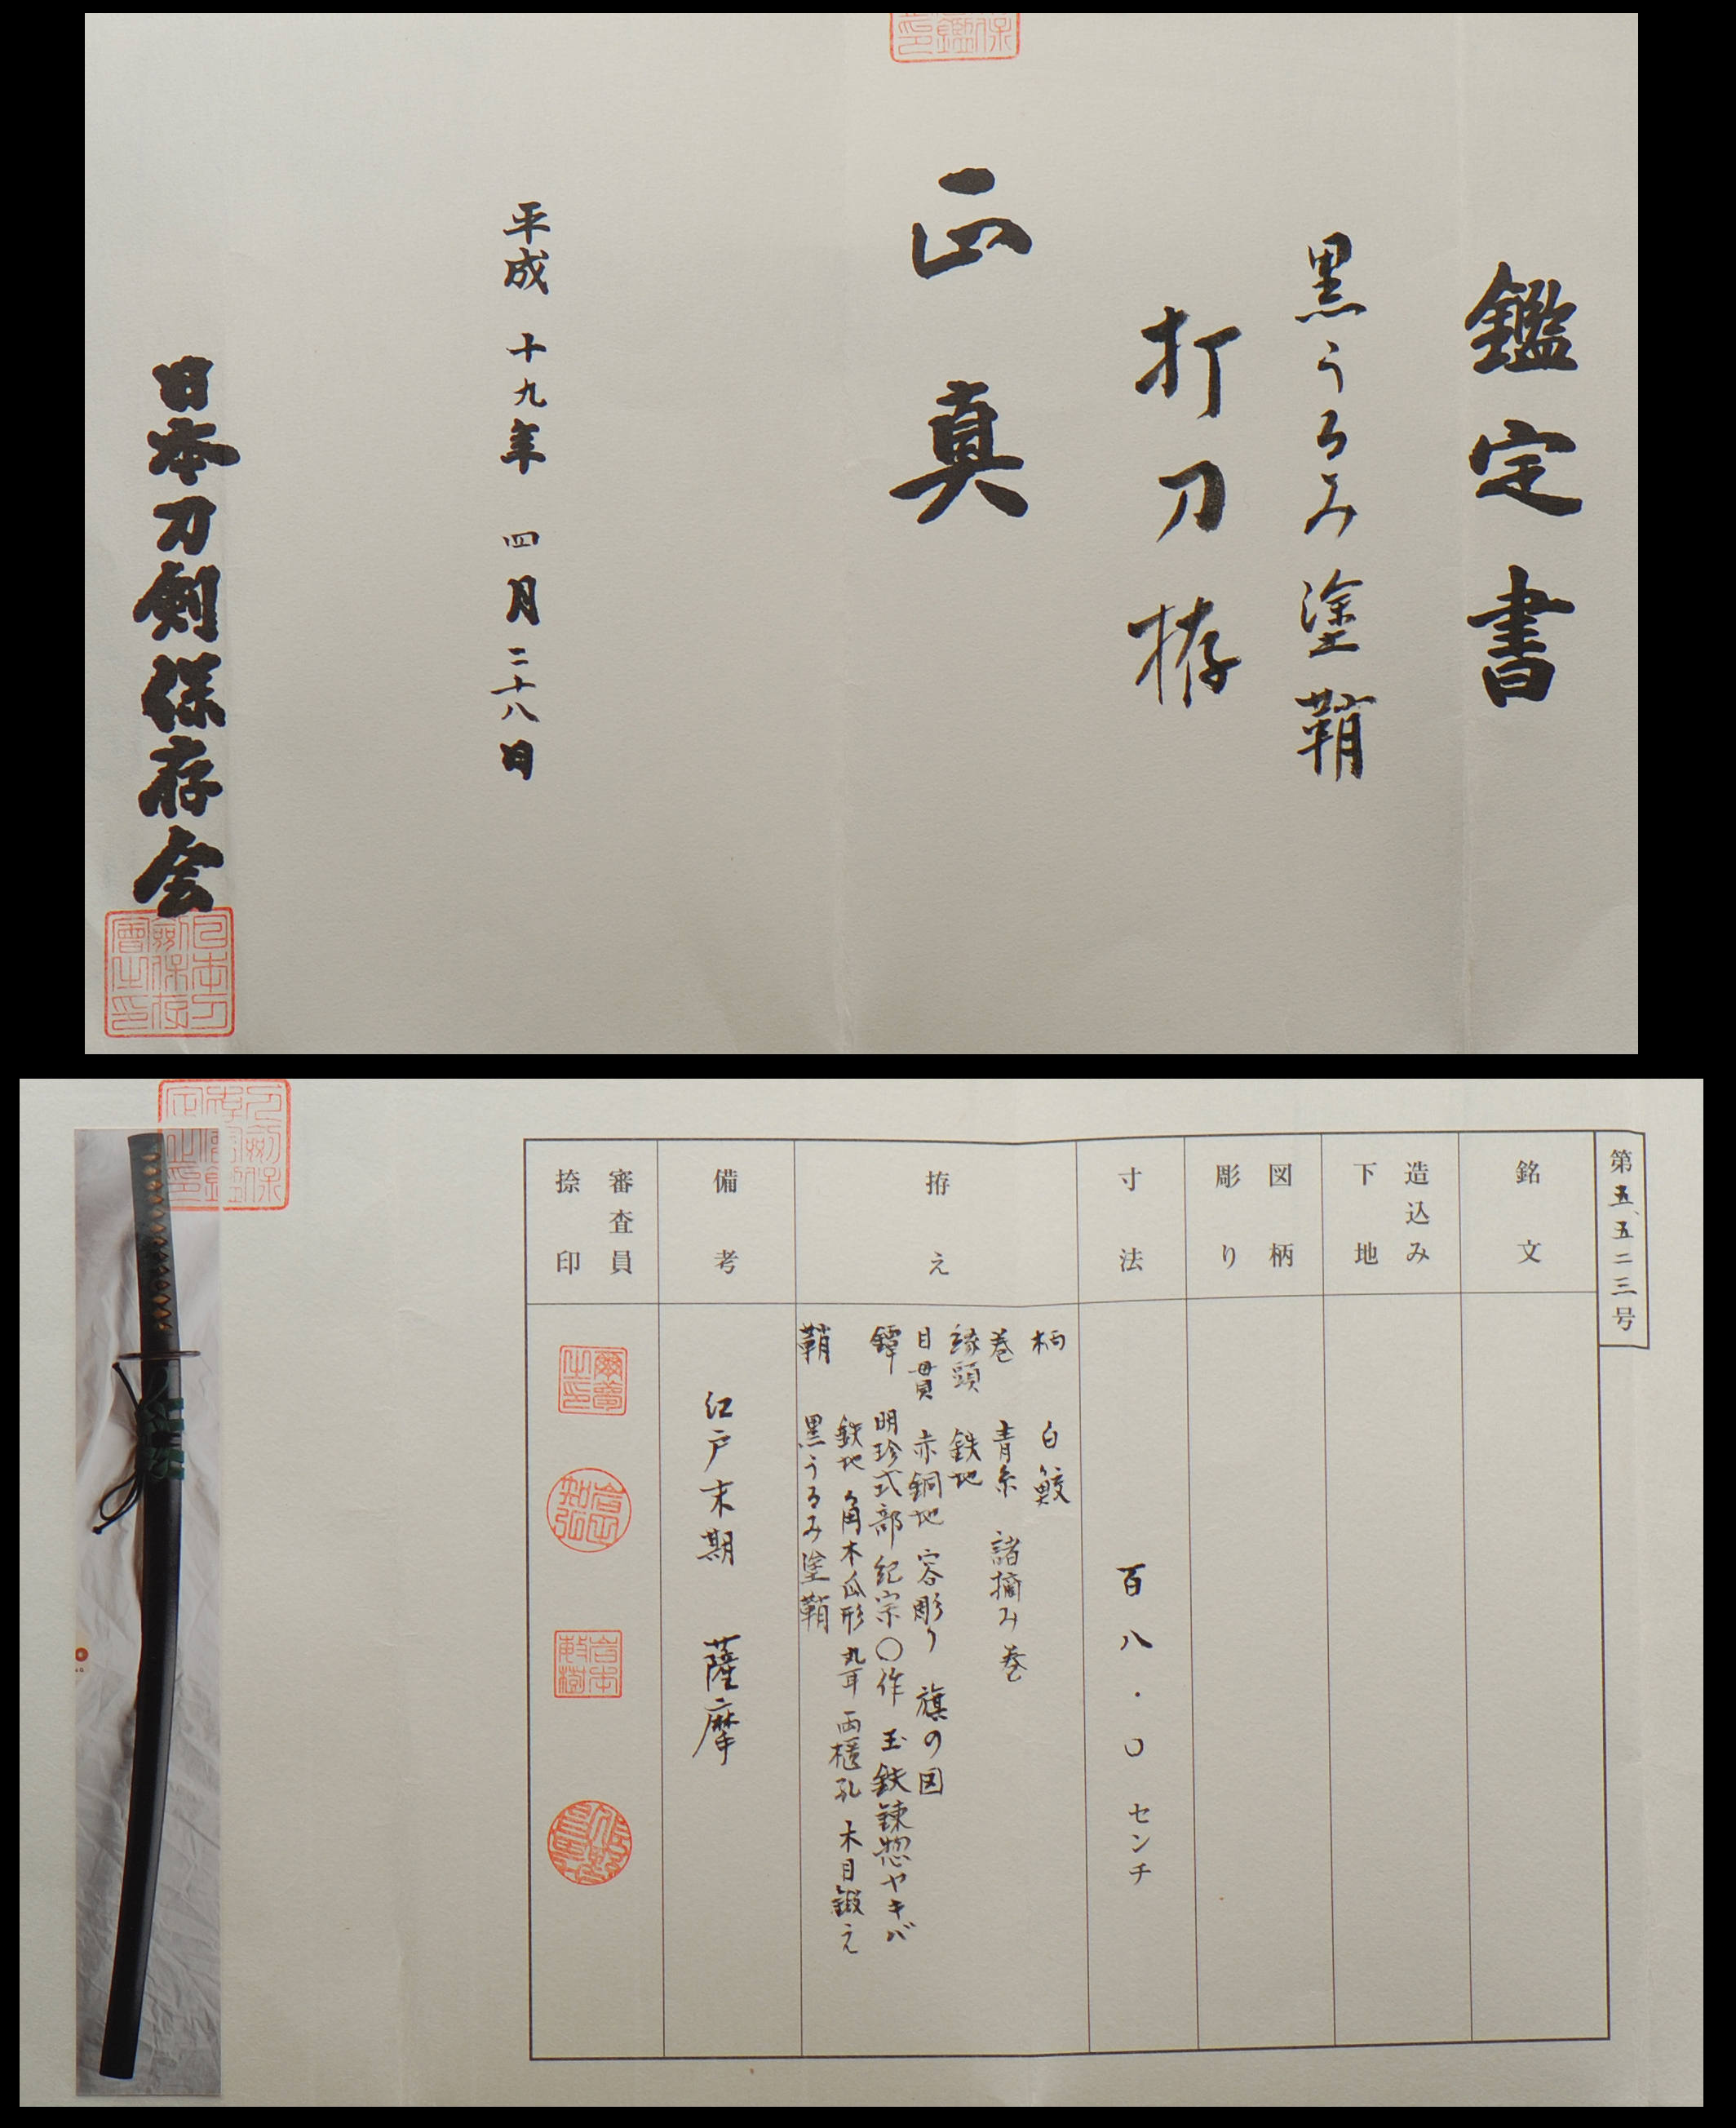 鑑定書
黒うるみ塗鞘
打刀拵
正真
平成十九年四月二十八日
日本刀剣保存会
日本刀剣保存會之印
第五、五二三号
銘文
造込み
下地
図柄
彫り
寸法
百八・〇センチ
拵え
柄 白鮫
巻 青糸 諸摘み巻
縁頭 鉄地
目貫 赤銅地 容彫り 旗の図
鐔 明珍式部紀宗〇作 玉鉄錬惣ヤキバ
鉄地 角木瓜形 丸耳 両櫃孔 木目鍛え
鞘 黒うるみ塗鞘
備考
江戸末期 薩摩
審査員
捺印